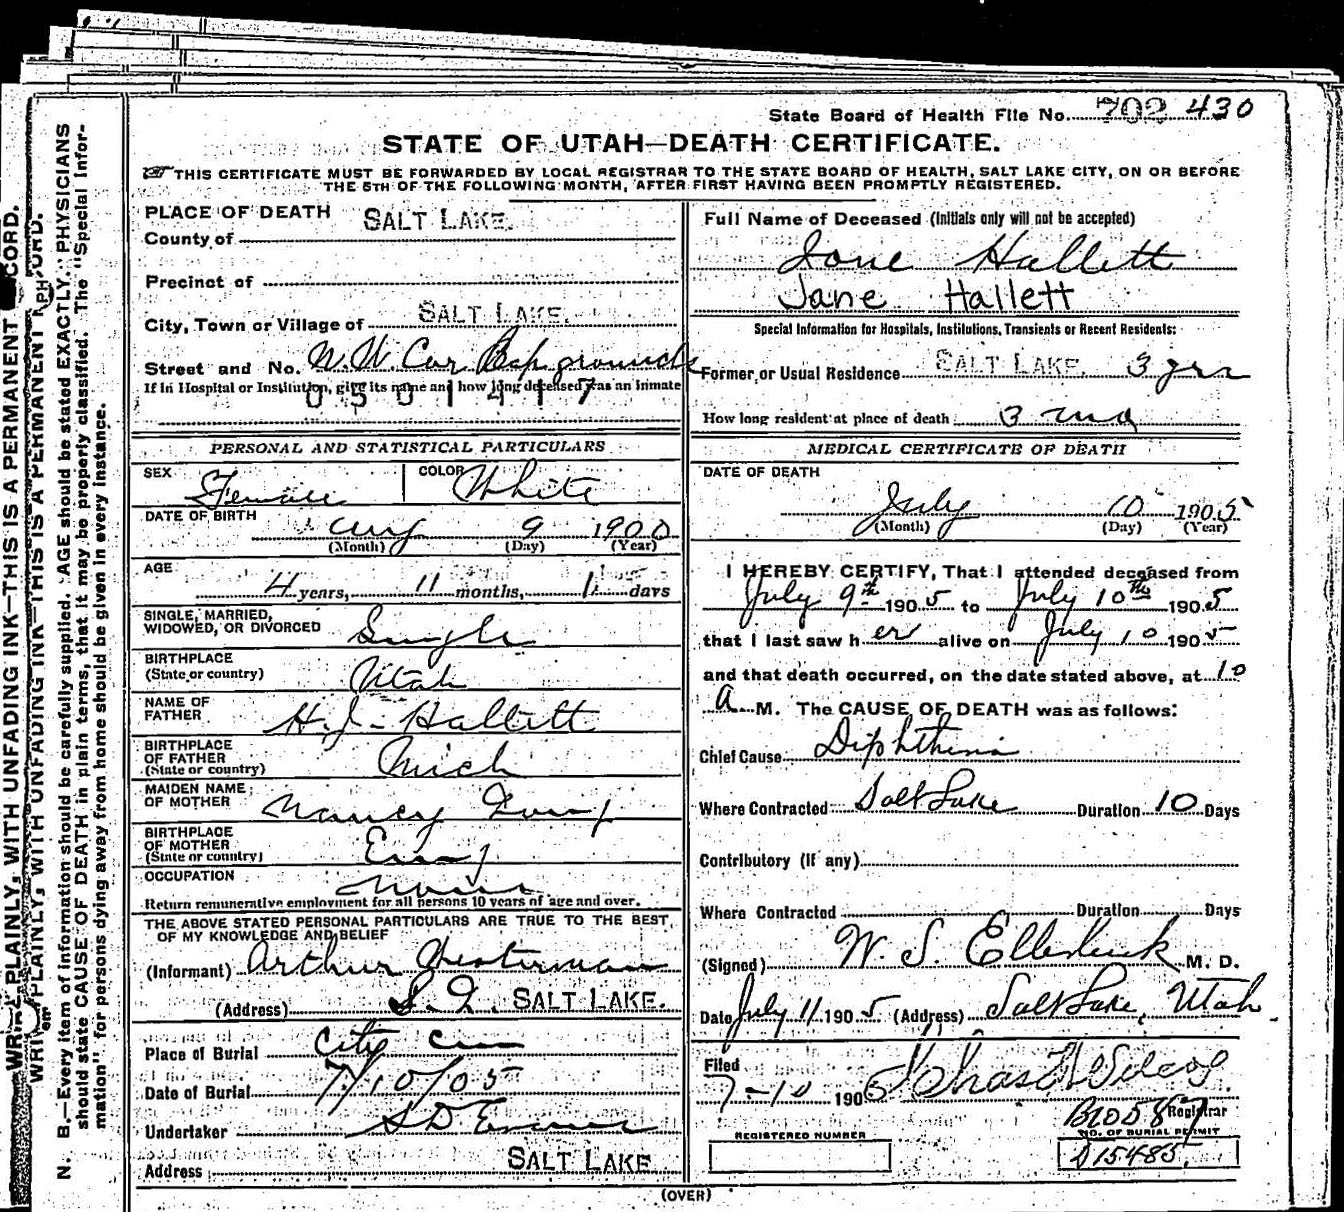 State Board of Health File No. 702 430
STATE OF UTAH—DEATH CERTIFICATE.
THIS CERTIFICATE MUST BE FORWARDED BY LOCAL REGISTRAR TO THE STATE BOARD OF HEALTH, SALT LAKE CITY, ON OR BEFORE
THE 5TH OF THE FOLLOWING MONTH, AFTER FIRST HAVING BEEN PROMPTLY REGISTERED.
PLACE OF DEATH
County of SALT LAKE.
Precinct of
City, Town or Village of SALT LAKE.
Street and No. N. W. Cor grounds
If in Hospital or Institution, give its name and how long deceased was an inmate
0501417
PERSONAL AND STATISTICAL PARTICULARS
SEX Female COLOR White
DATE OF BIRTH Aug 9 1900
(Month) (Day) (Year)
AGE 4 years, 11 months, 1 days
SINGLE, MARRIED,
WIDOWED, OR DIVORCED Single
BIRTHPLACE
(State or country) Utah
NAME OF
FATHER H. J. Hallett
BIRTHPLACE
OF FATHER
(State or country) Mich
MAIDEN NAME
OF MOTHER Nancy
BIRTHPLACE
OF MOTHER
(State or country) Eng
OCCUPATION None
Return remunerative employment for all persons 10 years of age and over.
THE ABOVE STATED PERSONAL PARTICULARS ARE TRUE TO THE BEST
OF MY KNOWLEDGE AND BELIEF
(Informant) Arthur
(Address) S. L. SALT LAKE.
Place of Burial City Cem
Date of Burial 7/10/05
Undertaker S D Evans
Address SALT LAKE
Full Name of Deceased (Initials only will not be accepted)
Jane Hallett
Jane Hallett
Special Information for Hospitals, Institutions, Transients or Recent Residents:
Former or Usual Residence SALT LAKE. 3 yrs
How long resident at place of death 3 mo
MEDICAL CERTIFICATE OF DEATH
DATE OF DEATH
July 10 1905
(Month) (Day) (Year)
I HEREBY CERTIFY, That I attended deceased from
July 9th 1905 to July 10th 1905
that I last saw her alive on July 10 1905
and that death occurred, on the date stated above, at 10
A. M. The CAUSE OF DEATH was as follows:
Chief Cause Diphtheria
Where Contracted Salt Lake Duration 10 Days
Contributory (if any)
Where Contracted Duration Days
(Signed) W. S. Ellerbeck M. D.
Date July 11 1905 (Address) Salt Lake, Utah.
Filed
7-10 1905 Chas Wilcox
Registrar
B10587
REGISTERED NUMBER
NO. OF BURIAL PERMIT
D15485
(OVER)
WRITE PLAINLY, WITH UNFADING INK—THIS IS A PERMANENT RECORD.
WRITE PLAINLY, WITH UNFADING INK—THIS IS A PERMANENT
N. B.—Every item of information should be carefully supplied. AGE should be stated EXACTLY. PHYSICIANS
should state CAUSE OF DEATH in plain terms, that it may be properly classified. The "Special Infor-
mation" for persons dying away from home should be given in every instance.